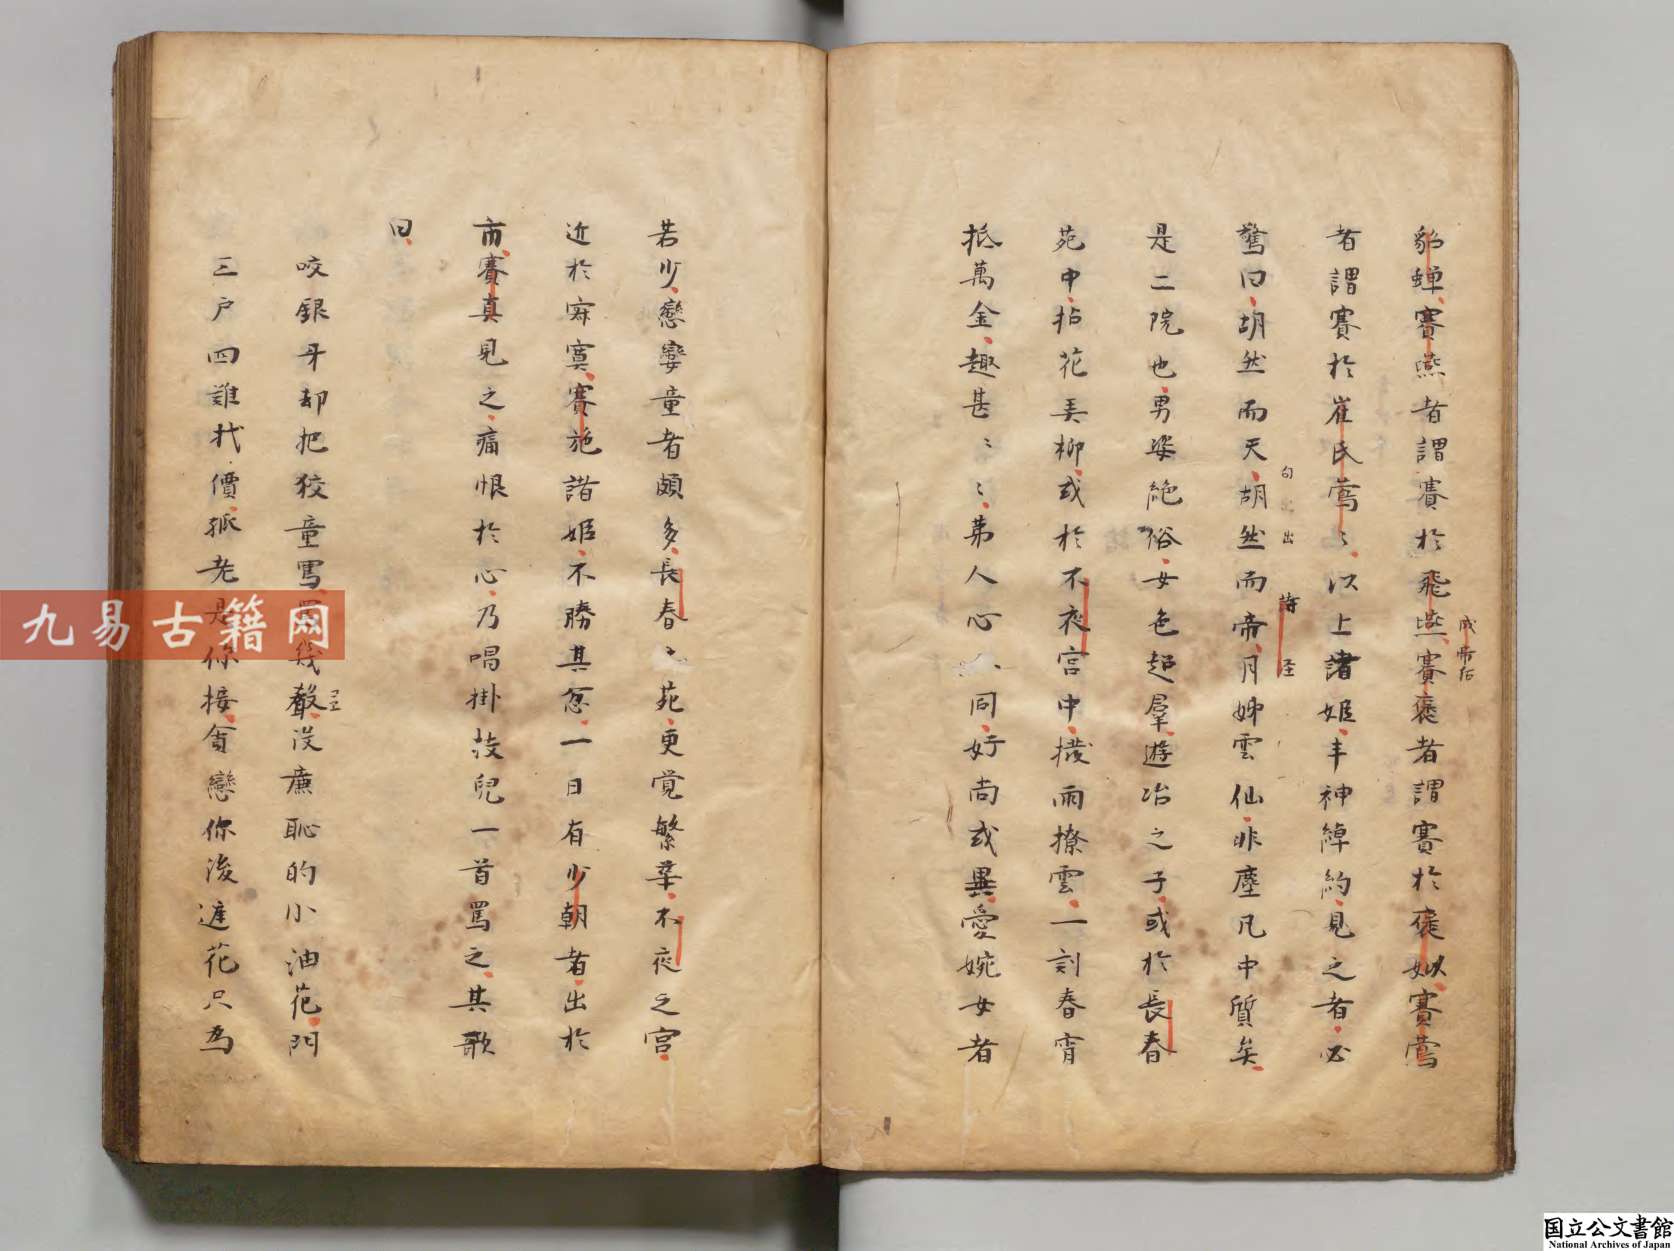 貂蟬賽燕者謂賽於飛燕賽褒者謂賽於褒姒賽鶯
成帝后
者謂賽於崔氏鶯〻以上諸姬丰神綽約見之者必
句出
詩
驚曰胡然而天胡然而帝月姊雲仙非塵凡中質矣
是二院也男姿絶俗女色超群遊冶之子或於長春
苑中拈花弄柳或於不夜宮中撥雨撩雲一刻春宵
抵萬金趣甚〻〻第人心同好尚或異愛婉女者
若少戀孌童者頗多長春〻苑更覚繁華不夜之宮
近於寂寞賽施諸姬不勝其忿一日有少朝者出於
市賽真見之痛恨於心乃唱掛枝兒一首罵之其歌
曰
咬銀牙却把狡童罵幾聲没廉恥的小油花門
三戶四誰代價孤老是你接貪戀你後遮花只為
九易古籍网
国立公文書館
National Archives of Japan